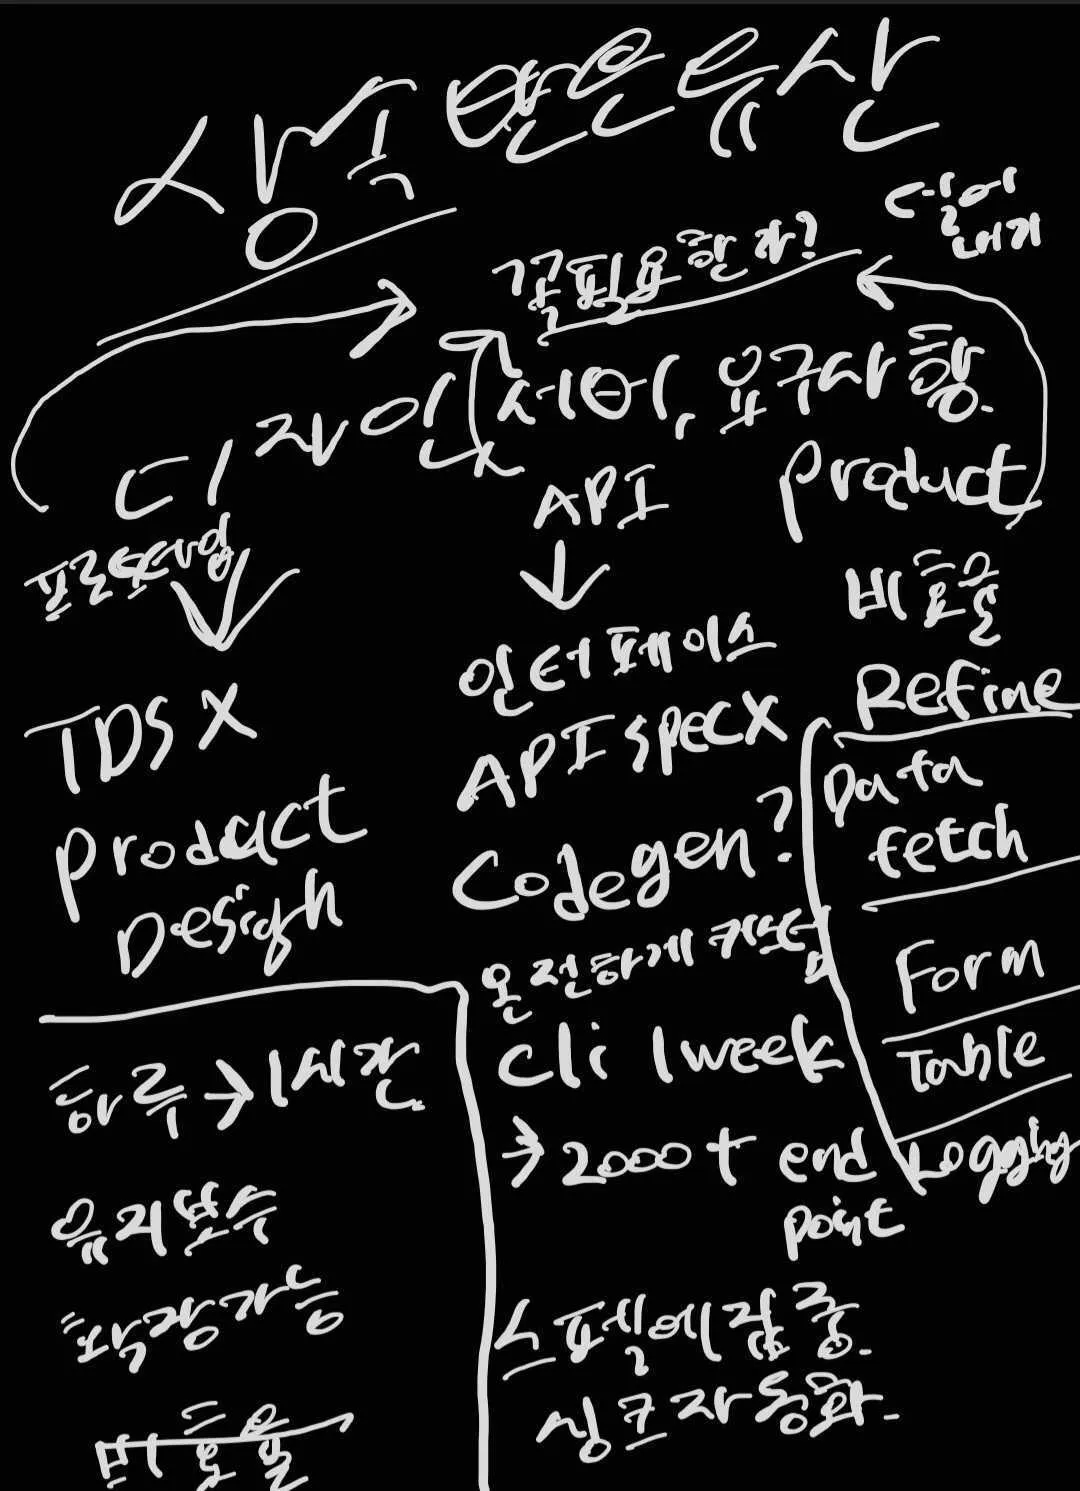 상속받은유산
덜어
내기
꼭필요한가?
디자인 서버, 요구사항.
API
product
프로토타이핑
비효율
인터페이스
Refine
TDS X
API spec X
Data
fetch
product
Design
Codegen?
온전하게 커버
Form
하루 → 1시간
cli 1week
Table
→ 2000+ end
point
Logging
유지보수
확장가능
스펙에 집중.
싱크자동화.
비효율